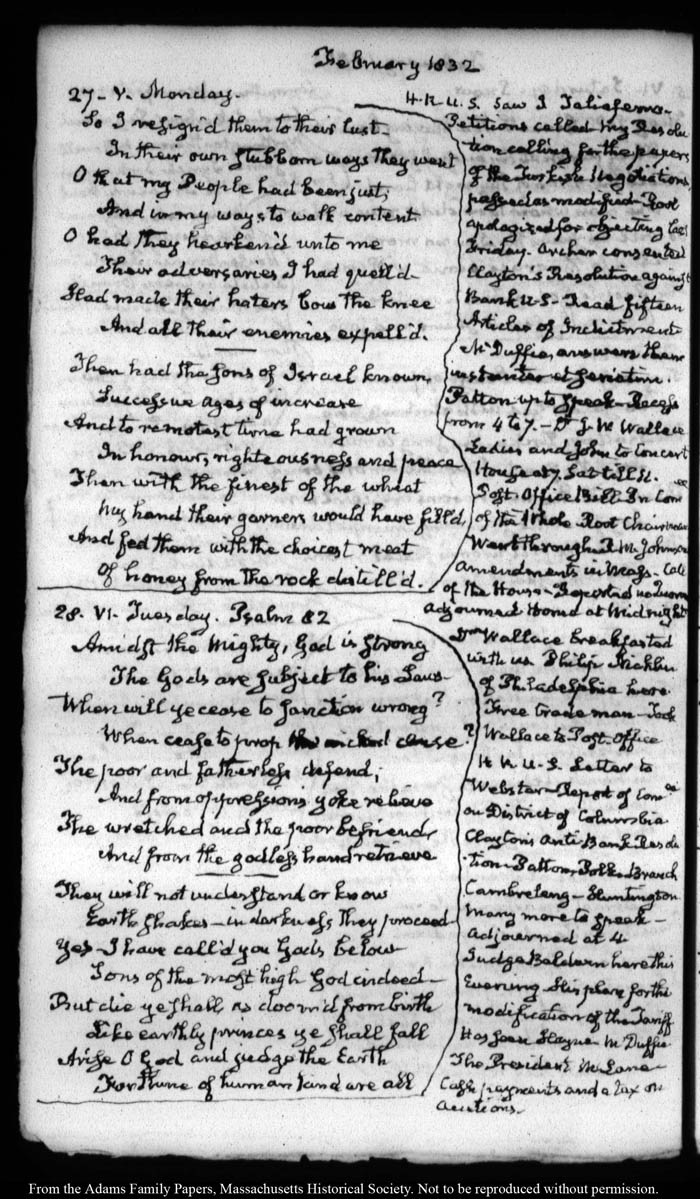 February 1832
27 - V. Monday.
So I resign'd them to their lust -
In their own stubborn ways they went
O that my People had been just,
And in my ways to walk content
O had they hearken'd unto me
Their adversaries I had quell'd -
Had made their haters bow the knee
And all their enemies expell'd.
Then had the sons of Israel known,
Successive ages of increase
And to remotest time had grown
In honour, righteousness and peace
Then with the finest of the wheat
My hand their garners would have fill'd,
And fed them with the choicest meat
Of honey from the rock distill'd.
H. R. U. S. Saw J Taliaferro -
Petitions called My Resolu-
tion calling for the papers
of the Turkish Negotiations
passed as modified - Root
apologized for objecting last
Friday. Archer consented
Clayton's Resolution against
Bank U-S - Read fifteen
Articles of Indictment
McDuffie, answers them
instanter et seriatim.
Patton up to speak - Recess
from 4 to 7. - D J. W. Wallace
Ladies and John to Concert
House at 7. Sat till 12.
Post Office Bill - In Com ee
of the Whole Root Chairman
Went through R M Johnson
amendments in Mass - Call
of the House - Reported no Quorum
Adjourned Home at Midnight
28. VI. Tuesday. Psalm 82
Amidst the Mighty, God is strong
The Gods are subject to his Laws -
When will ye cease to sanction wrong?
When cease to prop the wicked cause?
The poor and fatherless defend;
And from oppression's yoke relieve
The wretched and the poor befriend,
And from the godless hand retrieve
They will not understand or know
Earth shakes - in darkness they proceed
Yes - I have call'd you Gods below
Sons of the most high God indeed -
But die ye shall, as doom'd from birth
Like earthly princes ye shall fall
Arise O God and judge the Earth
For thine of human kind are all
Wallace breakfasted
with us Philip Nicklin
of Philadelphia here
Free trade man - Took
Wallace to Post-Office
H R U-S. Letter to
Webster - Report of Com ee
on District of Columbia
Clayton's Anti Bank Resolu
tion - Patton, Polk, Branch
Cambreleng - Huntington
Many more to speak -
Adjourned at 4
Judge Baldwin here this
Evening - His plan for the
modification of the Tariff
Has seen Hayne McDuffie
The President McLane -
Cash payments and a tax on
auctions.
From the Adams Family Papers, Massachusetts Historical Society. Not to be reproduced without permission.